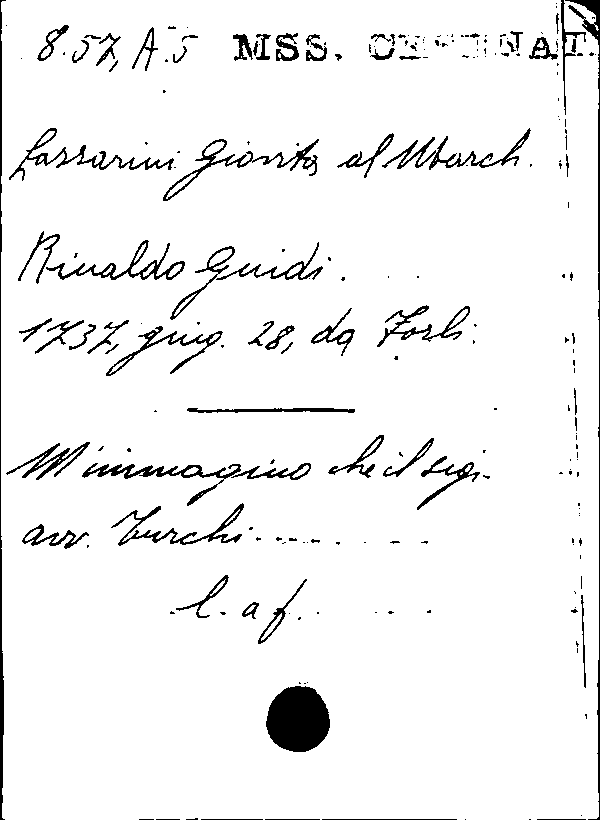 8.57, A.5 MSS. CESENAT.
Lassarini Giovita al March.
Rinaldo Guidi.
1737, giug. 28, da Forlì.
M'immagino che il sig.
avv. Turchi.........
l. a f.